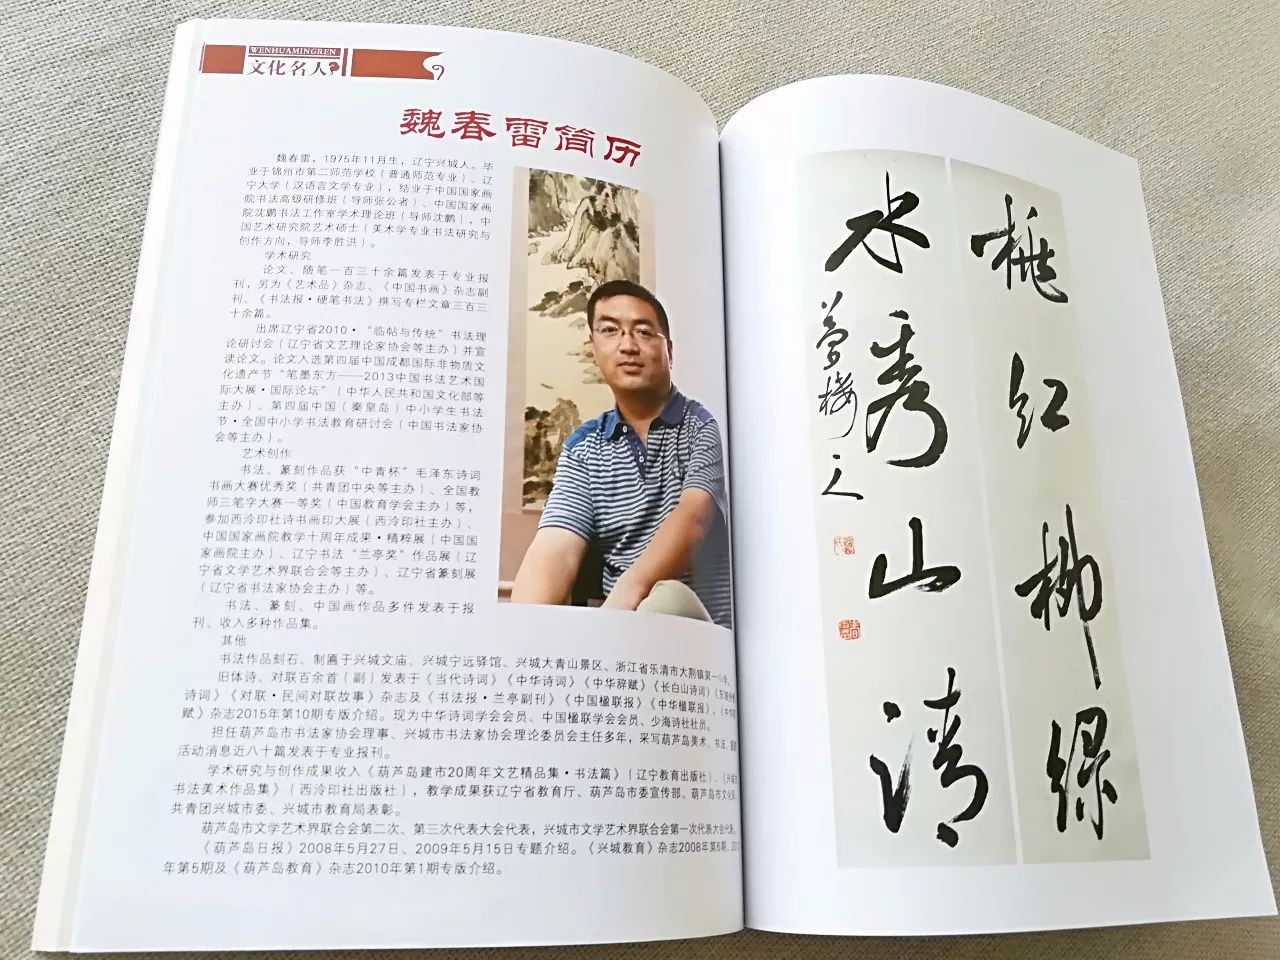 WENHUAMINGREN
文化名人
魏春雷简历
魏春雷，1975年11月生，辽宁兴城人。毕
业于锦州市第二师范学校（普通师范专业）、辽
宁大学（汉语言文学专业），结业于中国国家画
院书法高级研修班（导师张公者）、中国国家画
院沈鹏书法工作室学术理论班（导师沈鹏），中
国艺术研究院艺术硕士（美术学专业书法研究与
创作方向，导师李胜洪）。
学术研究
论文、随笔一百三十余篇发表于专业报
刊，另为《艺术品》杂志、《中国书画》杂志副
刊、《书法报·硬笔书法》撰写专栏文章三百三
十余篇。
出席辽宁省2010·“临帖与传统”书法理
论研讨会（辽宁省文艺理论家协会等主办）并宣
读论文。论文入选第四届中国成都国际非物质文
化遗产节“笔墨东方——2013中国书法艺术国
际大展·国际论坛”（中华人民共和国文化部等
主办）、第四届中国（秦皇岛）中小学生书法
节·全国中小学书法教育研讨会（中国书法家协
会等主办）。
艺术创作
书法、篆刻作品获“中青杯”毛泽东诗词
书画大赛优秀奖（共青团中央等主办）、全国教
师三笔字大赛一等奖（中国教育学会主办）等，
参加西泠印社诗书画印大展（西泠印社主办）、
中国国家画院教学十周年成果·精粹展（中国国
家画院主办）、辽宁书法“兰亭奖”作品展（辽
宁省文学艺术界联合会等主办）、辽宁省篆刻展
（辽宁省书法家协会主办）等。
书法、篆刻、中国画作品多件发表于报
刊、收入多种作品集。
其他
书法作品刻石、制匾于兴城文庙、兴城宁远驿馆、兴城大青山景区、浙江省乐清市大荆镇第一小学。
旧体诗、对联百余首（副）发表于《当代诗词》《中华诗词》《中华辞赋》《长白山诗词》《东坡赤壁
诗词》《对联·民间对联故事》杂志及《书法报·兰亭副刊》《中国楹联报》《中华楹联报》，《中华辞
赋》杂志2015年第10期专版介绍。现为中华诗词学会会员、中国楹联学会会员、少海诗社社员。
担任葫芦岛市书法家协会理事、兴城市书法家协会理论委员会主任多年，采写葫芦岛美术、书法、
活动消息近八十篇发表于专业报刊。
学术研究与创作成果收入《葫芦岛建市20周年文艺精品集·书法篇》（辽宁教育出版社）、《兴城
书法美术作品集》（西泠印社出版社），教学成果获辽宁省教育厅、葫芦岛市委宣传部、葫芦岛市文化局、
共青团兴城市委、兴城市教育局表彰。
葫芦岛市文学艺术界联合会第二次、第三次代表大会代表，兴城市文学艺术界联合会第一次代表大会代表。
《葫芦岛日报》2008年5月27日、2009年5月15日专题介绍。《兴城教育》杂志2008年第6期、
年第5期及《葫芦岛教育》杂志2010年第1期专版介绍。
桃红柳绿
水秀山清